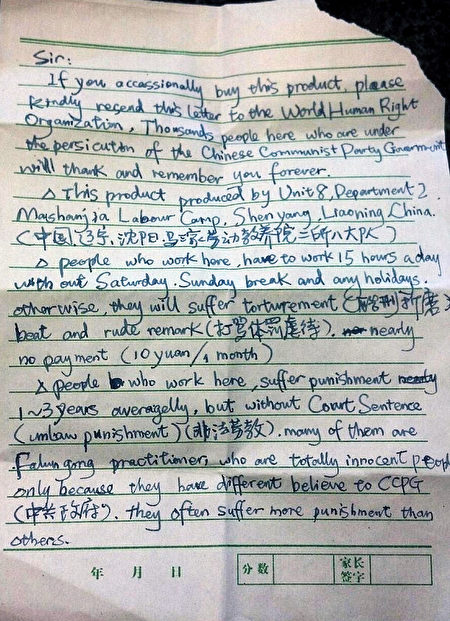 Sir:
If you accassionally buy this product, please
kindly resend this letter to the World Human Right
Organization. Thousands people here who are under
the persicution of the Chinese Communist Party Government
will thank and remember you forever.
△ This product produced by Unit 8, Department 2,
Mashanjia Labour Camp, Shenyang, Liaoning, China.
(中国,辽宁,沈阳马三家劳动教养院二所八大队)
△ people who work here, have to work 15 hours a day
with out Saturday, Sunday break and any holidays,
otherwise, they will suffer torturement (酷刑折磨),
beat and rude remark (打骂体罚虐待). nearly
no payment (10 yuan/1 month)
△ people who work here, suffer punishment
1~3 years averagelly, but without Court Sentence
(unlaw punishment) (非法劳教). many of them are
Falungong practitioner, who are totally innocent people
only because they have different believe to CCPG
(中共政府). they often suffer more punishment than
others.
年 月 日 分数 家长签字